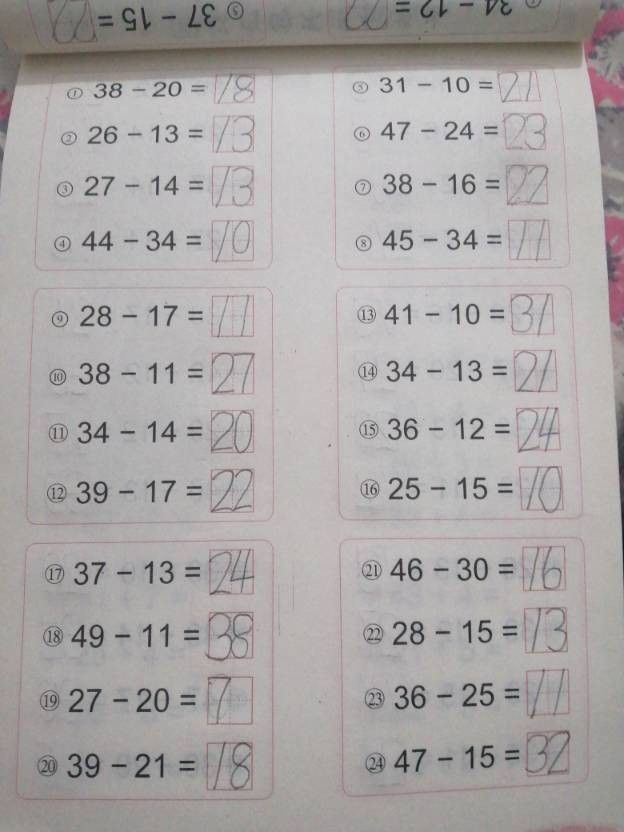 ⑤ 37 - 15 = 22
34 - 12 = 22
① 38 - 20 = 18
② 26 - 13 = 13
③ 27 - 14 = 13
④ 44 - 34 = 10
⑤ 31 - 10 = 21
⑥ 47 - 24 = 23
⑦ 38 - 16 = 22
⑧ 45 - 34 = 11
⑨ 28 - 17 = 11
⑩ 38 - 11 = 27
⑪ 34 - 14 = 20
⑫ 39 - 17 = 22
⑬ 41 - 10 = 31
⑭ 34 - 13 = 21
⑮ 36 - 12 = 24
⑯ 25 - 15 = 10
⑰ 37 - 13 = 24
⑱ 49 - 11 = 38
⑲ 27 - 20 = 7
⑳ 39 - 21 = 18
㉑ 46 - 30 = 16
㉒ 28 - 15 = 13
㉓ 36 - 25 = 11
㉔ 47 - 15 = 32